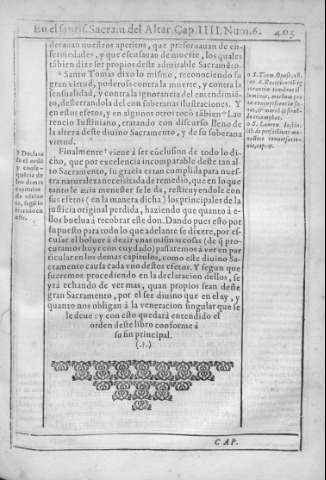 En el santiss. Sacram. del Altar. Cap. IIII. Num. 6. 403
derauan nuestros apetitos, que preseruauan de en-
fermedades, y que escusauan de muerte, los quales
tābien dize ser propios deste admirable Sacramēto.
Santo Tomas dixo lo mismo, reconociendo su
gran virtud, poderosa contra la muerte, y contra la
sensualidad, y contra la ignorancia del entendimiē-
to, desterrandola del con soberanas ilustraciones. Y
en estos efetos, y en algunos otros tocò tābien º Lau
rencio Iustiniano, tratando con discurso lleno de
la alteza deste diuino Sacramento, y de su soberana
virtud.
Finalmente viene à ser cōclusion de todo lo di-
cho, que por excelencia incomparable deste san al-
to Sacramento, su gracia estan cumplida para nues-
tra naturaleza necessitada de remedio, que en lo que
tanto le auia menester se le da, restituyendole con
sus efetos (en la manera dicha) los principales de la
justicia original perdida, haziendo que quanto à e-
llos buelua à recobrar este don. Dando pues esto por
supuesto para todo lo que adelante se dixere, por es-
cusar el boluer à dezir vnas mismas cosas (de q̄ pro-
curamos huyr con cuydado) passaremos à ver en par
ticular en los demas capitulos, como este diuino Sa-
cramento causa cada vno destos efetos. Y segun que
fueremos procediendo en la declaracion dellos, se
yrà echando de ver mas, quan propios sean deste
gran Sacramento, por el ser diuino que en el ay, y
quanto nos obligan à la veneracion singular que se
le deue: y con esto quedarà entendido el
orden deste libro conforme à
su fin principal.
(.?.)
7 Declara
se el ordē
y conse-
quencia de
los demas
capitulos
CAP.